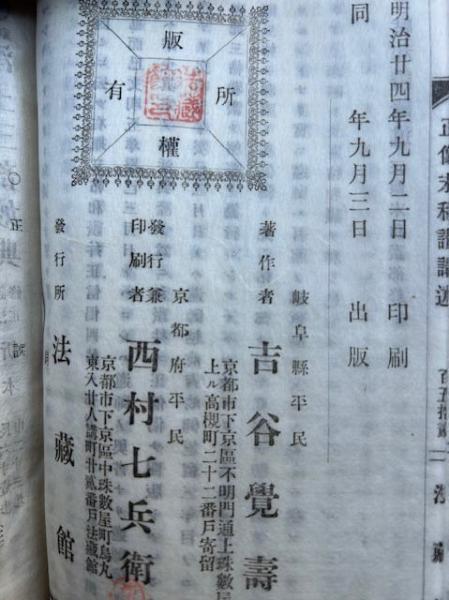 正像末和讃講述
明治廿四年九月二日 印刷
同 年九月三日 出版
岐阜縣平民
著作者 吉谷覺壽
京都市下京區不明門通上珠數屋
上ル高槻町二十二番戸寄留
京都府平民
發行兼
印刷者 西村七兵衛
京都市下京區中珠數屋町烏丸
東入廿人講町廿貳番戸法藏館
發行所 法藏館
版權所有